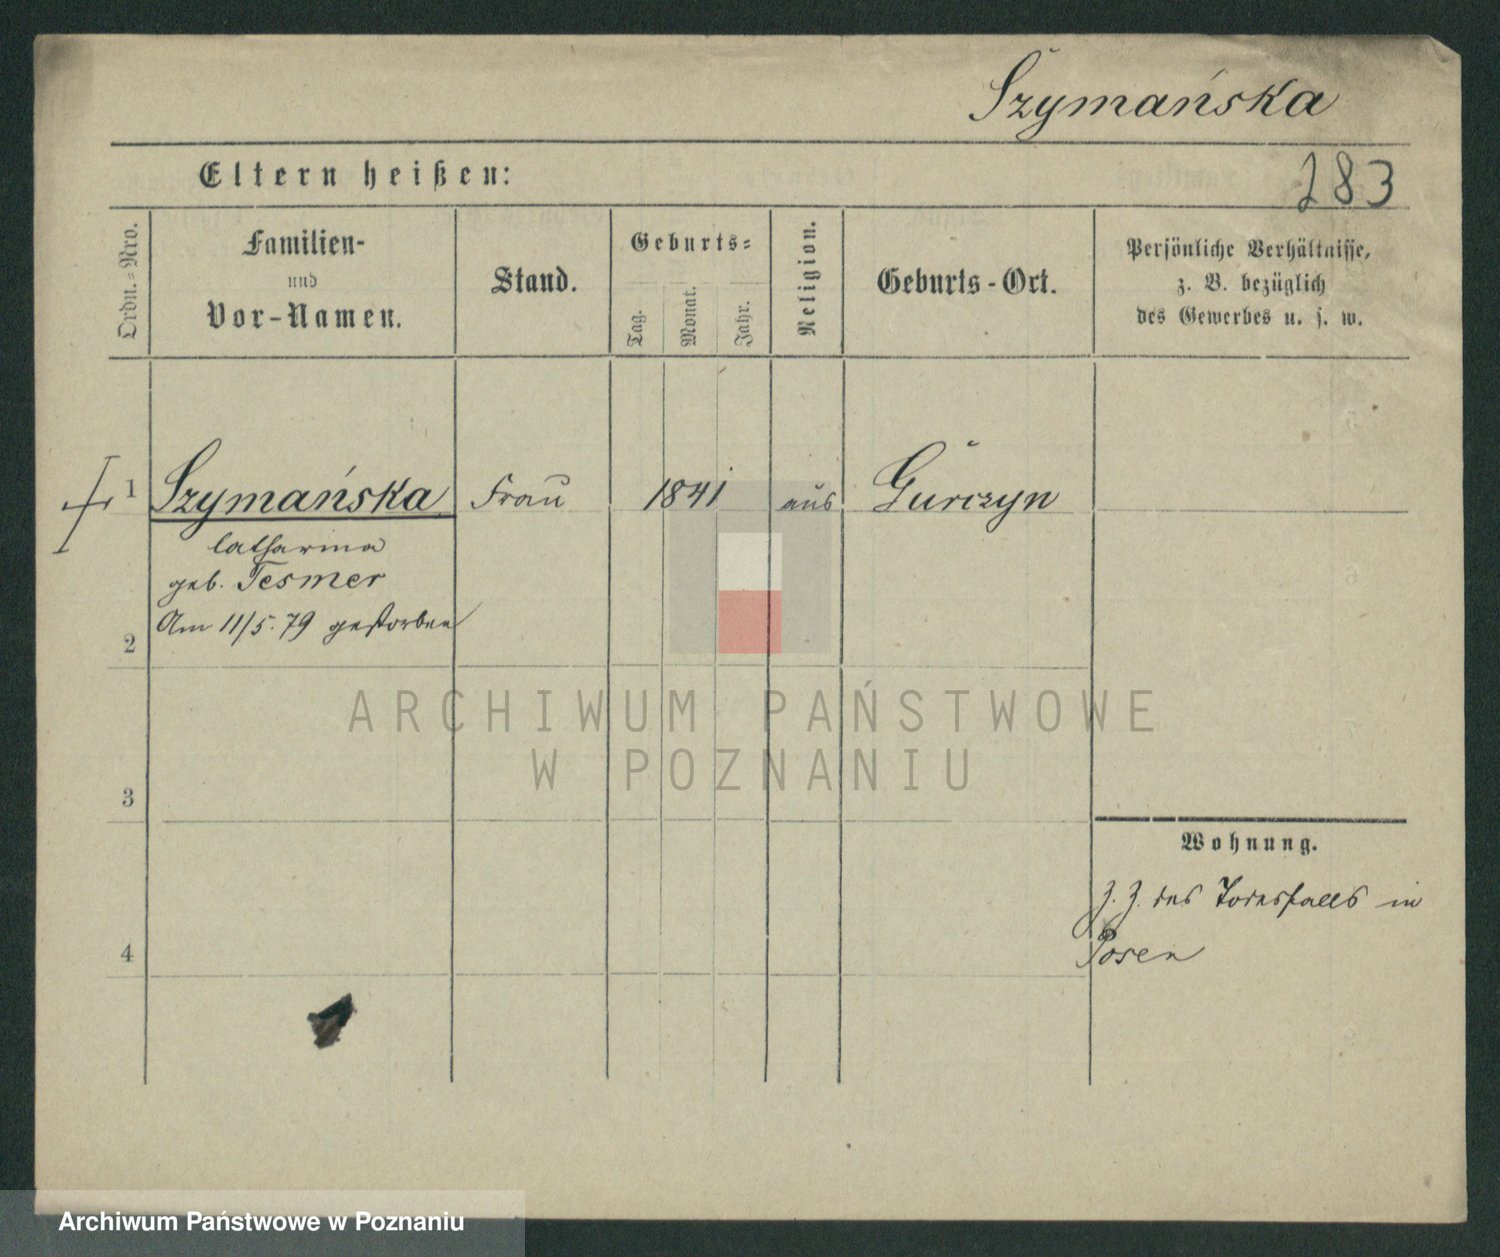 Szymańska
Eltern heißen:
283
Ordn.=Nro.
Familien-
und
Vor-Namen.
Stand.
Geburts=
Tag.
Monat.
Jahr.
Religion.
Geburts-Ort.
Persönliche Verhältnisse,
z. B. bezüglich
des Gewerbes u. s. w.
1 Szymańska Frau 1841 aus Gurczyn
Catharina
geb. Tesmer
Am 11/5. 79 gestorben
2
3
4
Wohnung.
z. Z. des Todesfalls in
Posen
ARCHIWUM PAŃSTWOWE
W POZNANIU
Archiwum Państwowe w Poznaniu